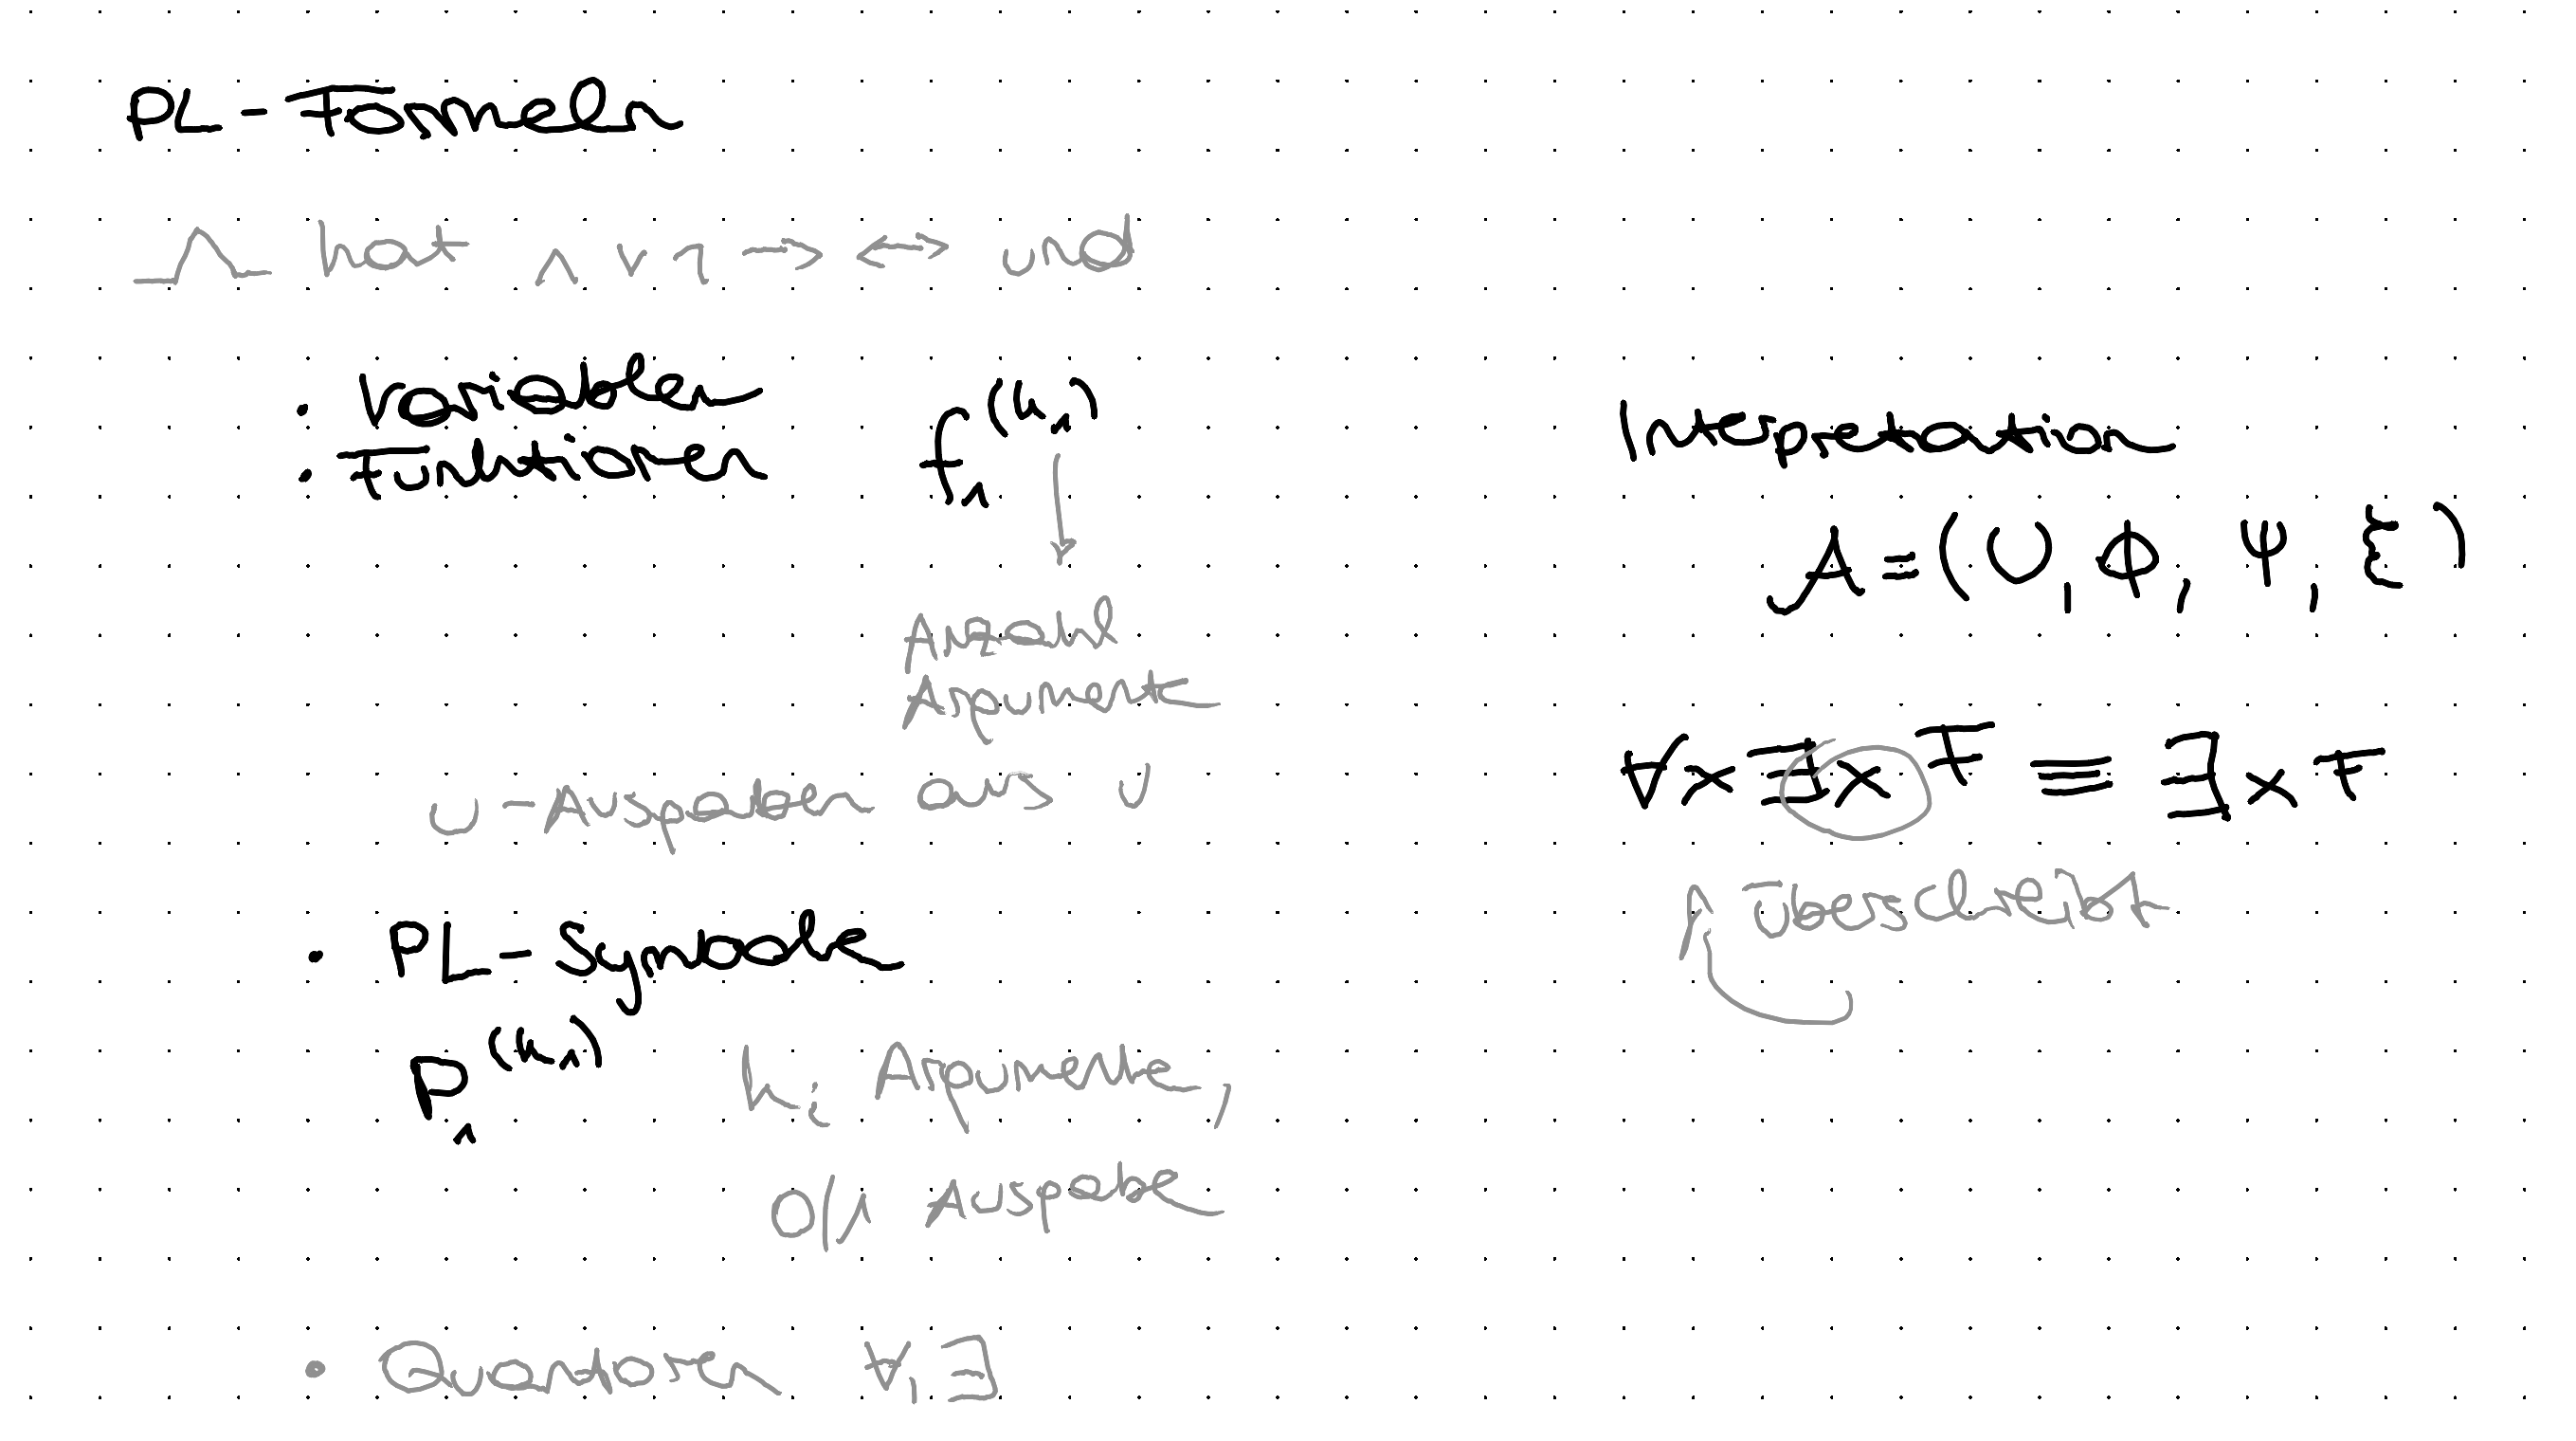 PL-Formeln
hat ∧ ∨ ¬ → ↔ und
• Variablen
• Funktionen f₁^(k₁)
↓
Anzahl
Argumente
U-Ausgaben aus U
• PL-Symbole
P₁^(k₁) kᵢ Argumente,
0/1 Ausgabe
• Quantoren ∀, ∃
Interpretation
A = (U, Φ, Ψ, ξ)
∀x∃x F ≡ ∃x F
↑ überschreibt